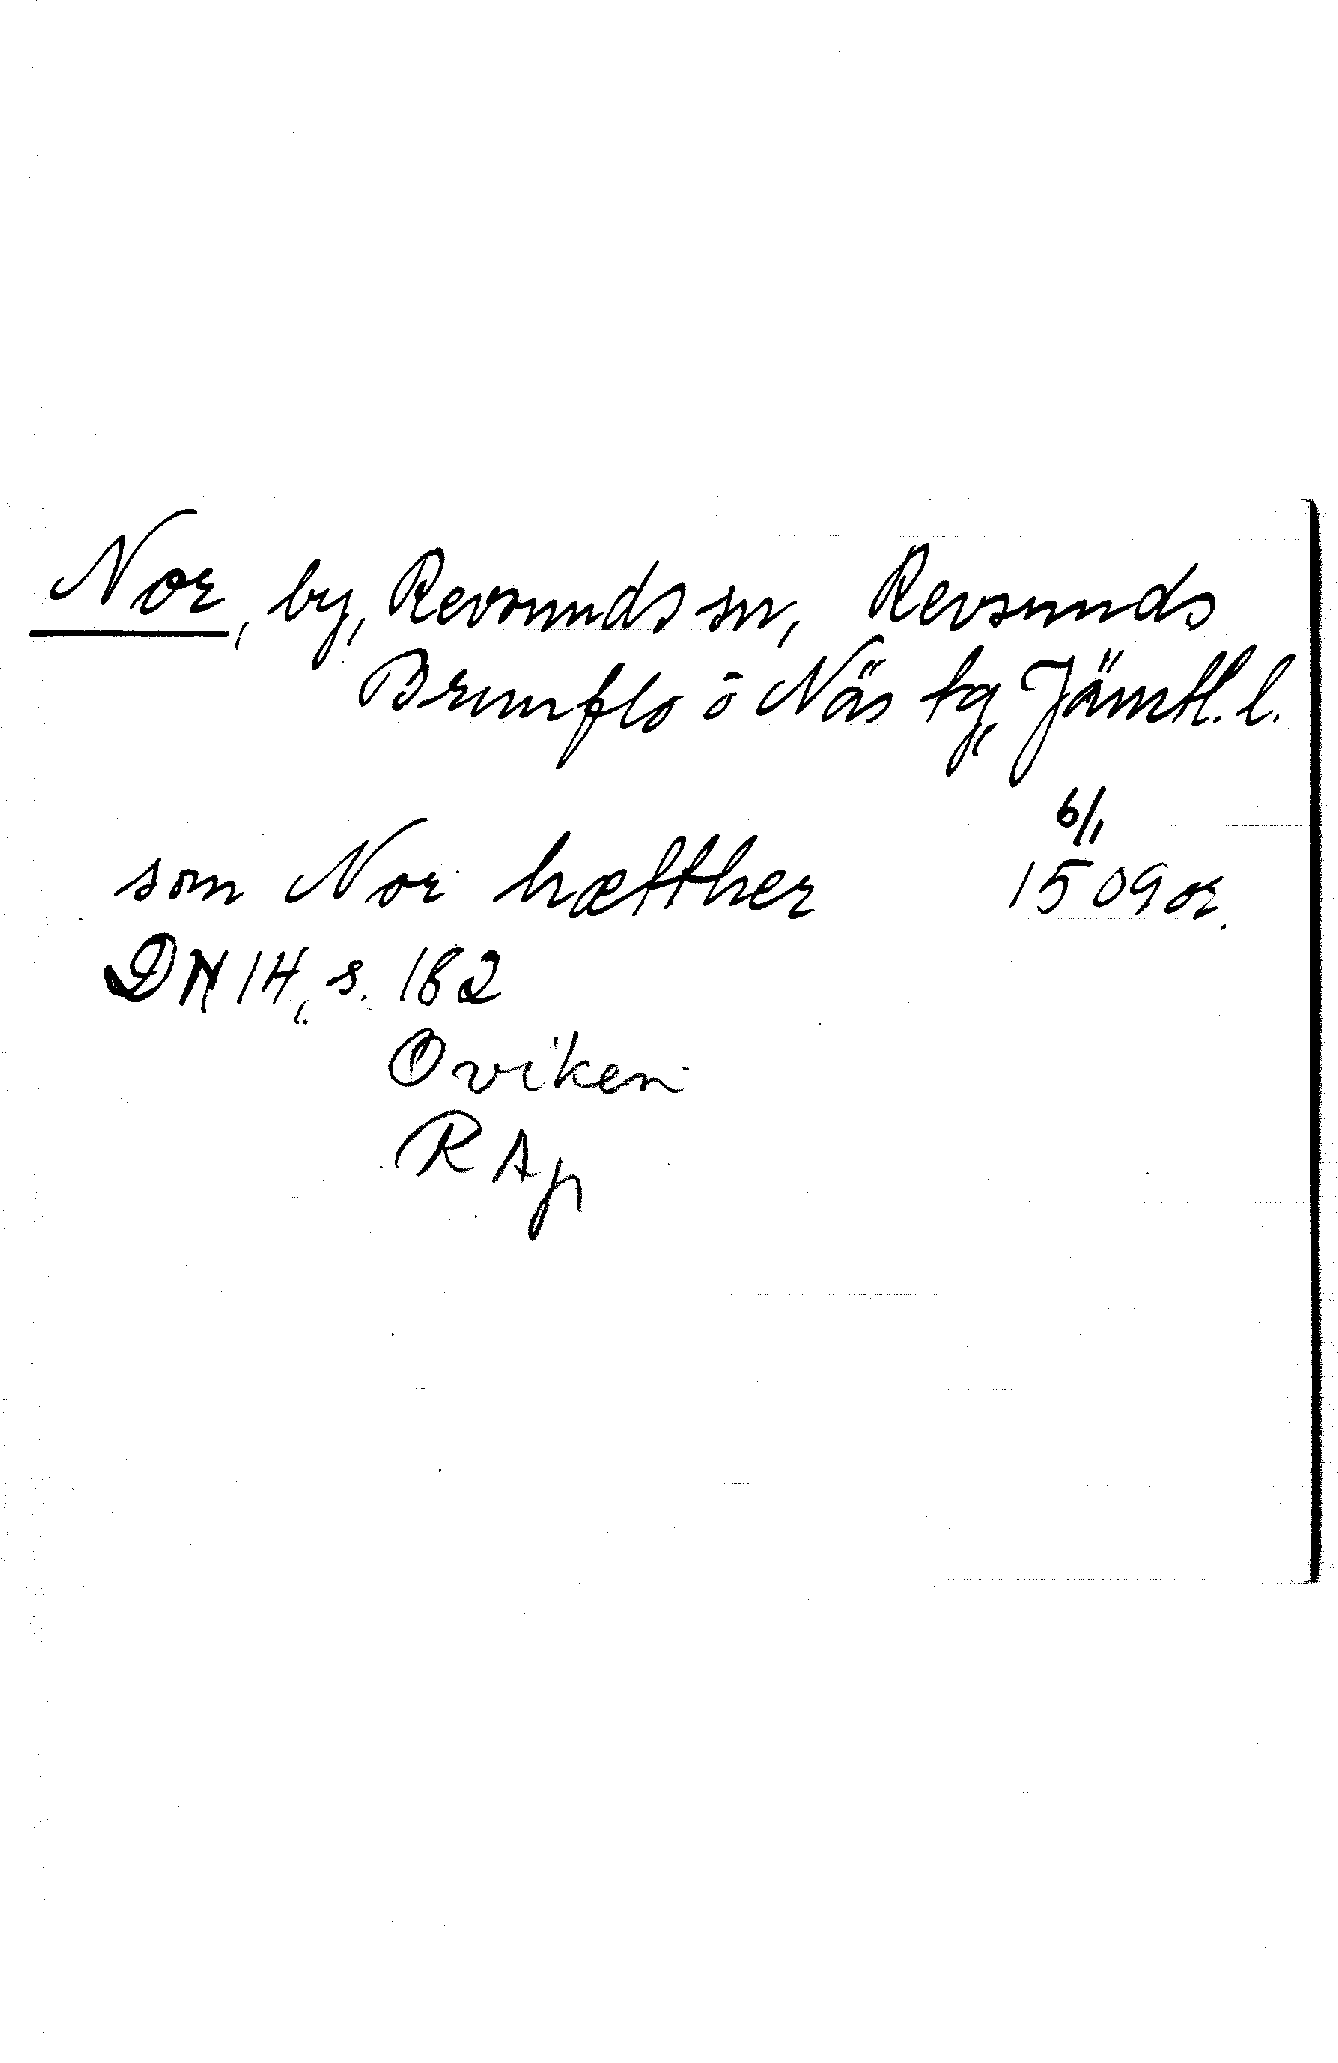 Nor, by, Revsunds sn, Revsunds
Brunflo o Näs tg, Jämtl. l.
6/1
som Nor hætther 1509 or.
DN 14, s. 162
Oviken
RAp